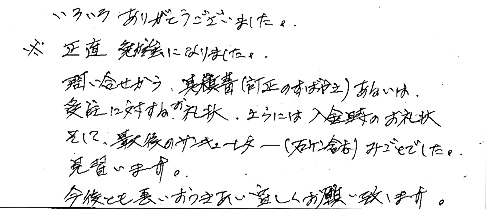 いろいろありがとうございました。
※ 正直 勉強になりました。
問い合せから、見積書(訂正のすばやさ)あるいは、
受注に対するお礼状、さらには入金時のお礼状
そして、最後のサンキューレター(石ケン含む)みごとでした。
見習います。
今後とも良いおつきあい宜しくお願い致します。